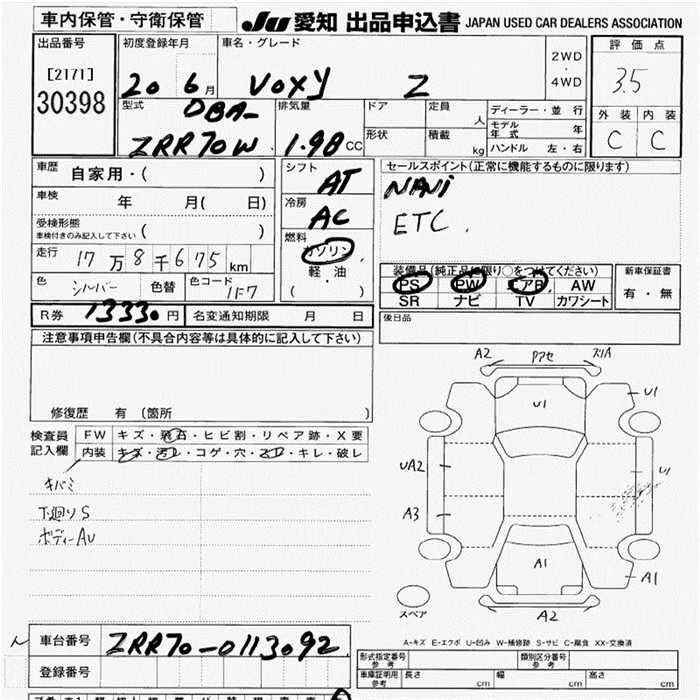 車内保管・守衛保管 JU 愛知 出品申込書 JAPAN USED CAR DEALERS ASSOCIATION
出品番号 初度登録年月 車名・グレード 2WD・4WD 評価点
[2171]
30398
20 6月 VOXY Z 3.5
型式 排気量 ドア 定員 人 ディーラー・並行 外装 内装
DBA-
ZRR70W 1.98 CC 形状 積載 kg モデル年式 年 C C
ハンドル 左・右
車歴 自家用・( )
シフト AT
セールスポイント(正常に機能するものに限ります)
NAVi
ETC.
車検 年 月( 日)
冷房 AC
受検形態
車検付きのみ記入して下さい ( )
燃料 ガソリン
軽・油
( )
走行 17万8千675km
色 シルバー 色替 色コード 1F7
装備品(純正品に限り○をつけてください) 新車保証書
PS PW エアB AW 有・無
SR ナビ TV カワシート
R券 13330円 名変通知期限 月 日
後日品
注意事項申告欄(不具合内容等は具体的に記入して下さい)
修復歴 有 (箇所 )
検査員記入欄 FW キズ・飛石・ヒビ割・リペア跡・X要
内装 キズ・汚レ・コゲ・穴・スレ・キレ・破レ
キバミ
下廻りS
ボディーAU
A2 Pアセ ズリA
U1 U1
UA2 U1
A3
A1 A1
スペア A2
A-キズ E-エクボ U-凹み W-補修跡 S-サビ C-腐食 XX-交換済
車台番号 ZRR70-0113092
登録番号
形式指定番号 参考 類別区分番号 参考
車庫証明用 参考 長さ cm 幅 cm 高さ cm